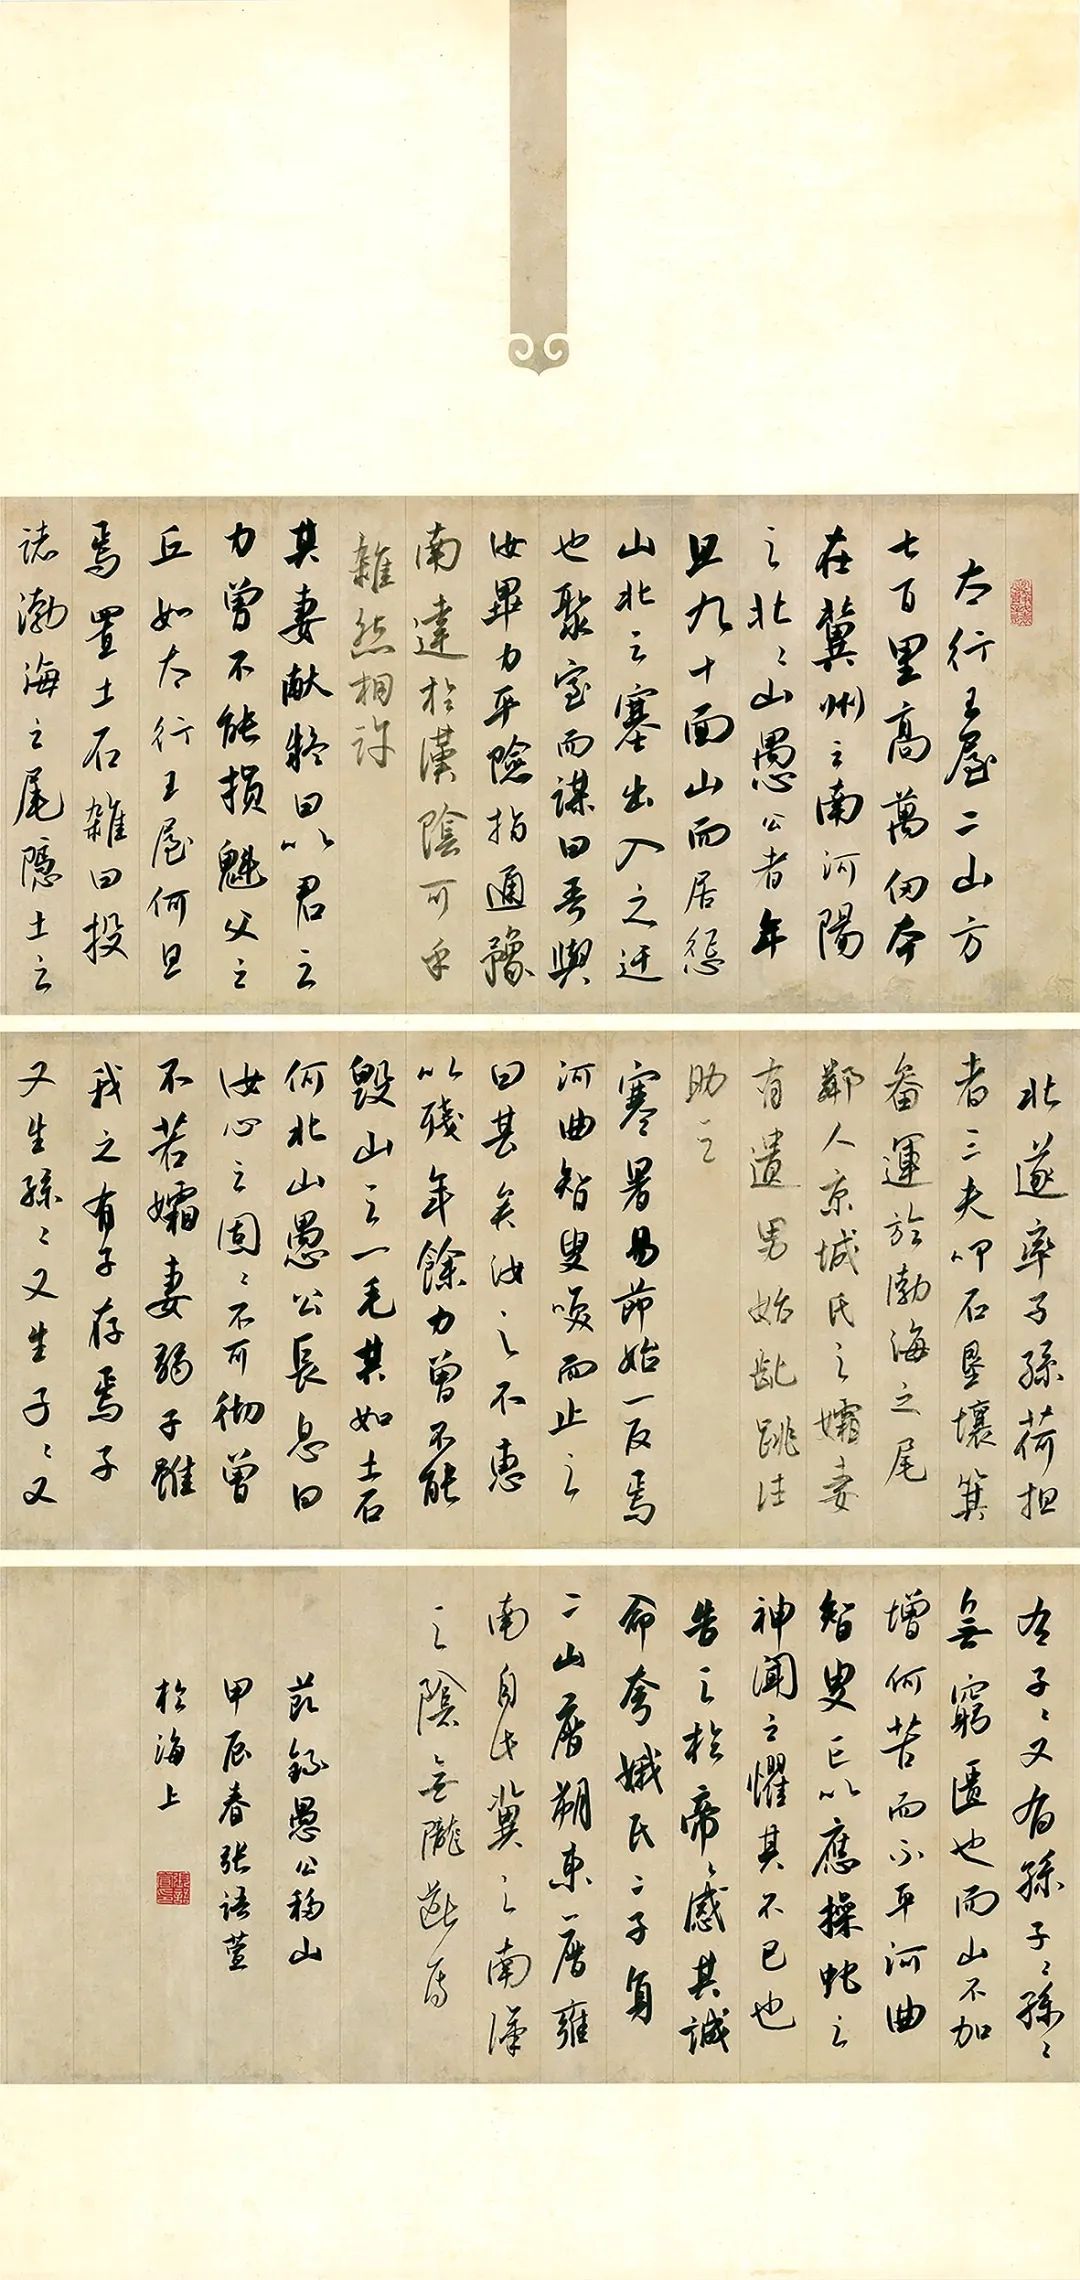 太行王屋二山方
七百里高萬仞本
在冀州之南河陽
之北北山愚公者年
且九十面山而居懲
山北之塞出入之迂
也聚室而謀曰吾與
汝畢力平險指通豫
南達於漢陰可乎
雜然相許
其妻献疑曰以君之
力曾不能損魁父之
丘如太行王屋何且
焉置土石雜曰投
諸渤海之尾隱土之
北遂率子孫荷担
者三夫叩石墾壤箕
畚運於渤海之尾
鄰人京城氏之孀妻
有遺男始齔跳往
助之
寒暑易節始一反焉
河曲智叟笑而止之
曰甚矣汝之不惠
以殘年餘力曾不能
毀山之一毛其如土石
何北山愚公長息曰
汝心之固固不可徹曾
不若孀妻弱子雖
我之有子存焉子
又生孫孫又生子子又
有子子又有孫子子孫孫
無窮匱也而山不加
增何苦而不平河曲
智叟亡以應操蛇之
神聞之懼其不已也
告之於帝帝感其誠
命夸娥氏二子負
二山厝朔東一厝雍
南自此冀之南漢
之陰無隴斷焉
節錄愚公移山
甲辰春張語萱
於海上